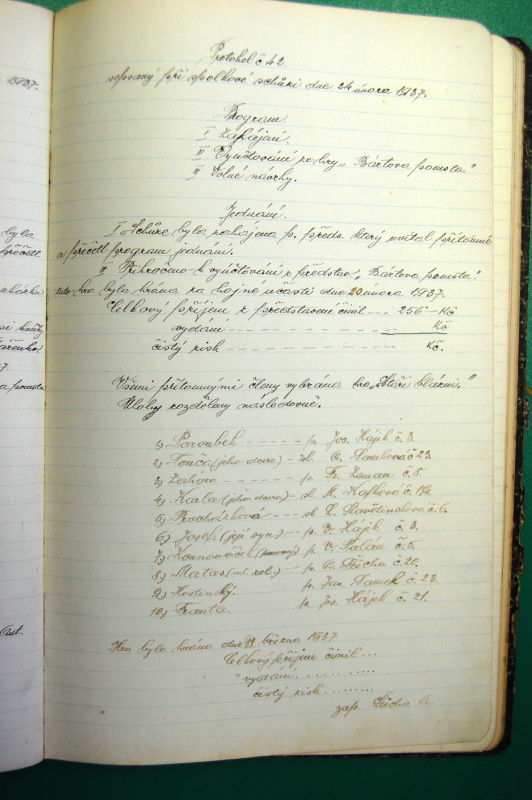 1937.
byla
přečetl
a pomsta
Protokol č 42.
sepsaný při spolkové schůzi dne 24 února 1937.
Program.
I Zahájení.
II Vyúčtování ze hry „Bártova pomsta."
III Volné návrhy.
Jednání.
I Schůze byla zahájena p. předs. který uvítal přítomné
a přečetl program jednání.
II Prikročeno k vyúčtování z představ „Bártova pomsta."
hra byla hrána za hojné účasti dne 20 února 1937.
Celkový příjem z představení činil --- 256 – Kč
vydání – – – – – – – – – Kč
čistý zisk – – – – – – – – – Kč.
Všemi přítomnými členy vybrána hra „Staří blázni."
Úlohy rozděleny následovně.
1,) Paroubek – – – – – p. Jos. Hájek č. 3.
2,) Tonča (jeho dcera) – sl. 23.
3,) p. Fr. Zeman č. 8.
4,) Karla (jeho dcera) – sl. M. Kafková č.
5,) Procházková – – – sl. č. 6.
6,) Josef (její syn) – – p. V. Hájek č. 3.
7,) p. V. Palán č. 5.
8,) Matas – – p. č. 20.
9,) Hostinský. p. Jar. č. 23.
10,) Franta. p. Jos. Hájek č. 21.
Hra byla hrána dne března 1937
Celkový příjem činil ...
vydání ...........
čistý zisk .........
zap.